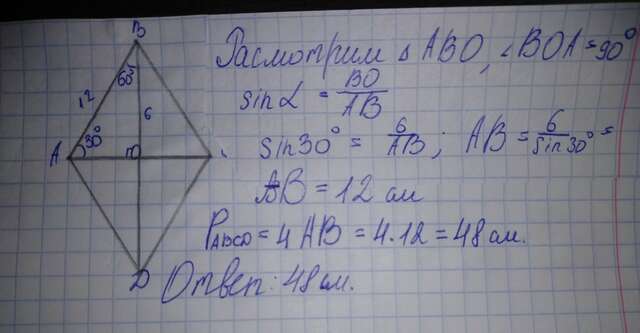 B
60°
12
6
A
30°
D
Расмотрим △ ABO, ∠BOA = 90°
sin α = BO/AB
sin 30° = 6/AB ; AB = 6/sin 30° =
AB = 12 см
P ABCD = 4 AB = 4 · 12 = 48 см.
Ответ: 48 см.